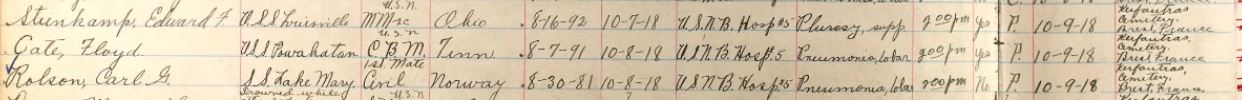 U.S.N. Kerfautras
Steinkamp, Edward F. U.S.S. Louisville MM2c Ohio 8-16-92 10-7-18 U.S.N.B. Hosp #5 Plurosy, supp 2 00 pm Yes P. 10-9-18 Cemetery. Brest, France
U.S.N. Kerfautras,
Gate, Floyd U.S.S. Powhatan C.B.M. Tenn 8-7-91 10-8-18 U.S.N.B. Hosp. 5 Pneumonia, lobar 2 00 pm Yes P. 10-9-18 Cemetery. Brest France
1st. Mate Kerfautras,
Rolson, Carl G. S.S. Lake Mary. Civil Norway 8-30-81 10-8-18 U.S.N.B. Hosp #5 Pneumonia, lobar 2 00 pm No P. 10-9-18 Cemetery. Brest, France
Drowned while U.S.N. Kerfautras